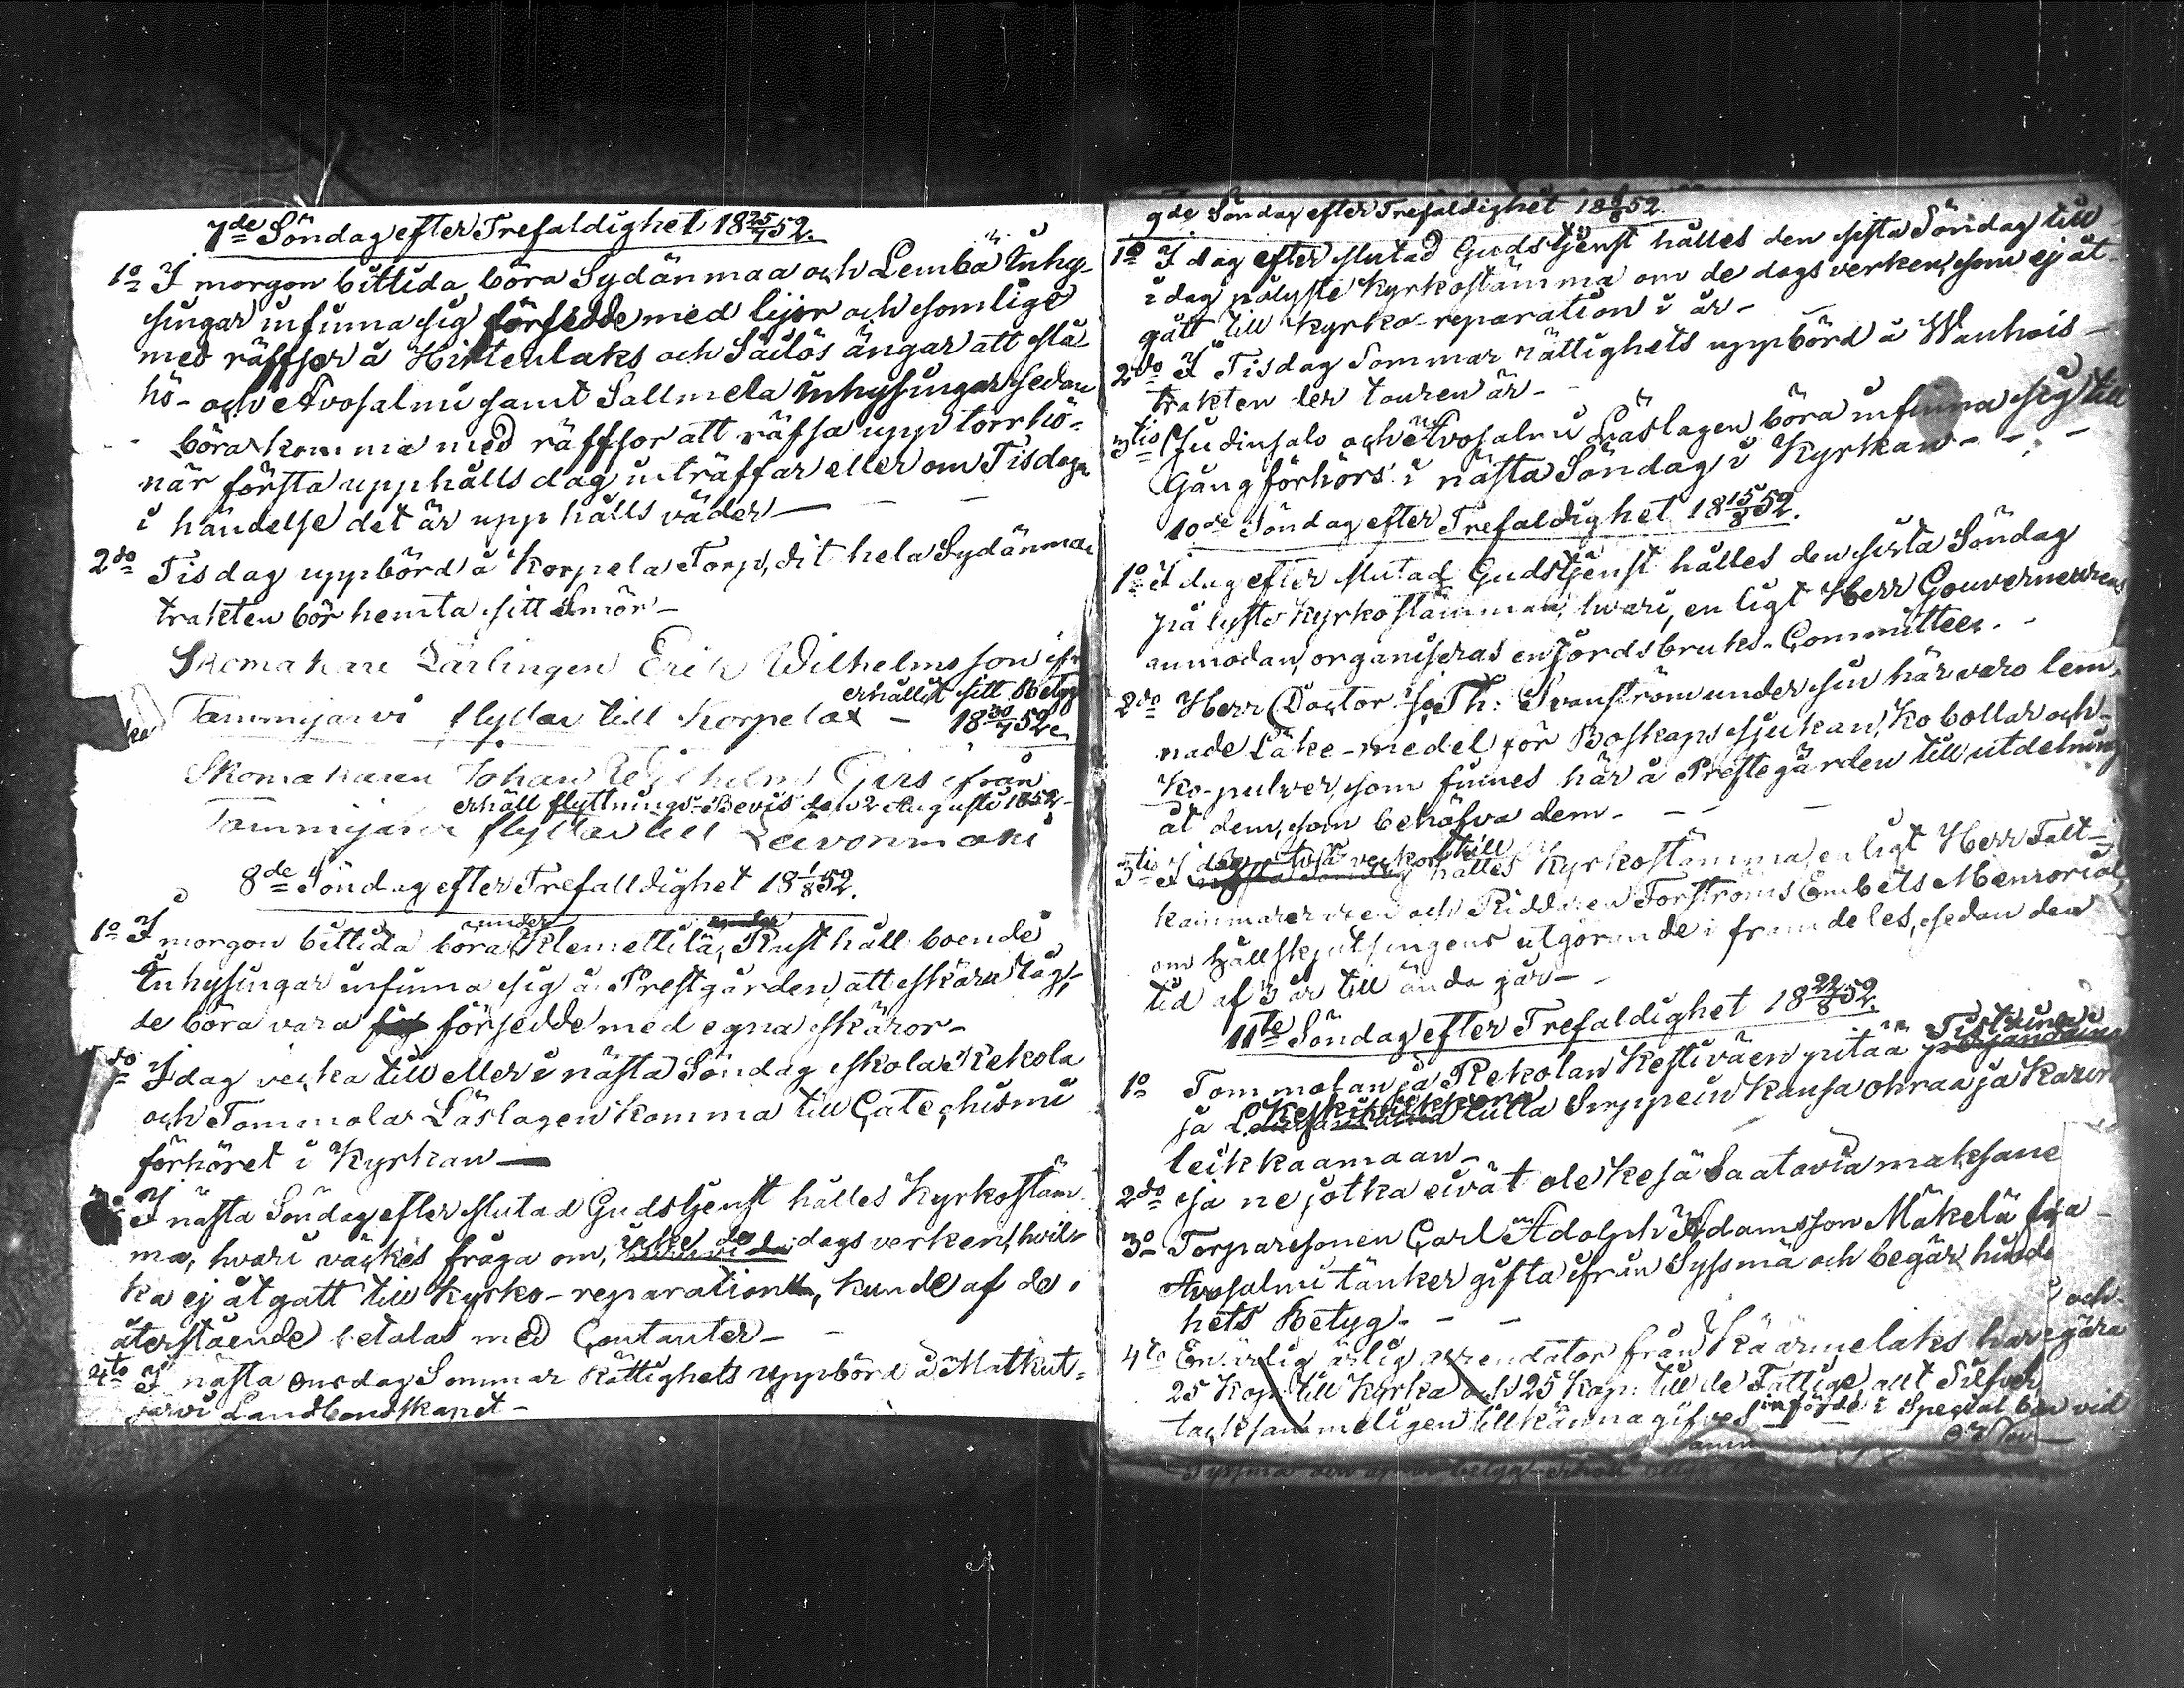 7de Söndag efter Trefaldighet 18 25/7 52.
1o I morgon bittida böra Sydänmaa och Lembä Inhy-
singar infinna sig försedde med lijor och somlige
med räfsor å Hirtenlaks och Säilös ängar att slå
hö- och Avosalmi samt Sallmela inhysingar sedan
böra komma med räffsor att räfsa upp torrhö-
när första upphålls dag inträffar eller om Tisdagn
i händelse det är upphålls väder —
2do Tisdag uppbörd å Korpela Torp, dit hela Sydänmaa
trakten bör hemta sitt Smör —
Skomakare Lärlingen Erik Wilhelmsson ifr
erhållit sitt Betyg
Tammijärvi flyttar till Korpelax — 18 30/7 52
Skomakaren Johan Wilhelm Girs ifrån
erhåll flyttnings-Bevis den 2 Augusti 1852
Tammijärvi flyttar till Leivonmäki
8de Söndag efter Trefalldighet 18 1/8 52.
under
1o I morgon bittida böra Klemettilä, Rusthåll boende
Inhysingar infinna sig å Prestgården, att skära råg,
de böra vara försedde med egna skäror —
do I dag vecka till eller i nästa Söndag skola Rekola
och Tommola Läslagen komma till Catechismi
förhöret i Kyrkan —
I nästa Söndag efter slutad Gudstjenst hålles Kyrkostäm
ma, hvari väckes fråga om, icke de dagsverken, hvil-
ka ej åtgått till Kyrko-reparation, kunde af de
återstående betalas med Contanter —
4to I nästa onsdag Sommar Rättighets Uppbörd å Matkut-
järvi Landbondskapet —
9de Söndag efter Trefaldighet 18 8/8 52.
1o I dag efter slutad Gudstjenst hålles den sista Söndag till
i dag pålyste Kyrkostämma om de dagsverken, som ej åt-
gått till kyrko-reparation i år —
2do I Tisdag Sommar rättighets uppbörd å Wanhois-
trakten der touren är —
3tio Judinsalo och Avosalmi Läslagen böra infinna sig till
Gångförhörs i nästa Söndag i Kyrkan —
10de Söndag efter Trefaldighet 18 15/8 52.
1o I dag efter slutad Gudstjenst hålles den sista Söndag
pålyste Kyrkostämman, hvari, enligt Herr Gouverneurens
anmodan, organiseras en Jordsbruks-Committee. —
2do Herr Doctor J. Th: Svanström under sin här varo lem-
nade Läke-medel för Boskapssjukan, Kobollar och
Ko-pulver, som finnes här å Prestegården till utdelning
åt dem, som behöfva dem —
3tio I dag två veckor till hålles Kyrkostämma, enligt Herr Fält-
kammarer ren och Riddaren Forströms Embets Memorial,
om Hållskjutsingens utgörande i framdeles, sedan den
tid af 3 år till ända går —
11te Söndag efter Trefaldighet 18 22/8 52.
1o Tommolan ja Rekolan Kestiväen pitää Tistaina
ja Keskiviikkona tulla Sirppein kansa ohraa ja
leikkaamaan —
2do ja ne jotka eivät ole kesä Saatavia maksane
3o Torparesonen Carl Adolph Adamsson Mäkelä
Avosalmi tänker gifta ifrån Syssmä och begär hinde
hets Betyg. —
4to En ärlig arrendator från Käärmelaks har och
25 Kop. till Kyrka och 25 Kop. till de Fattige, allt Silfver,
tacksammeligen tillkänna gifves införde i Special